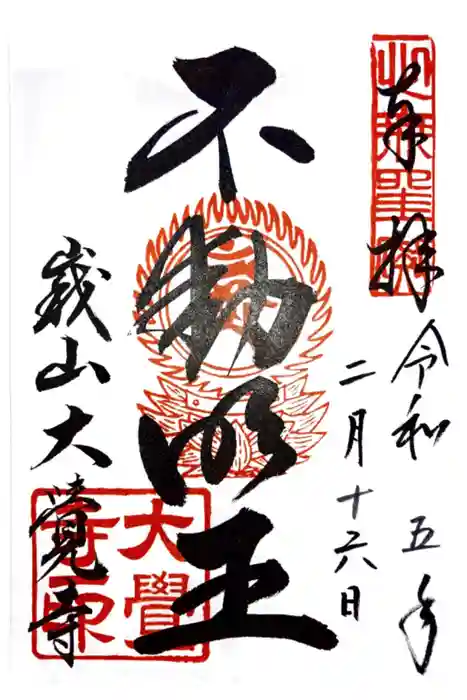 奉拝
令和五年
二月十六日
不動明王
嵯山大覺寺
大覺
寺印